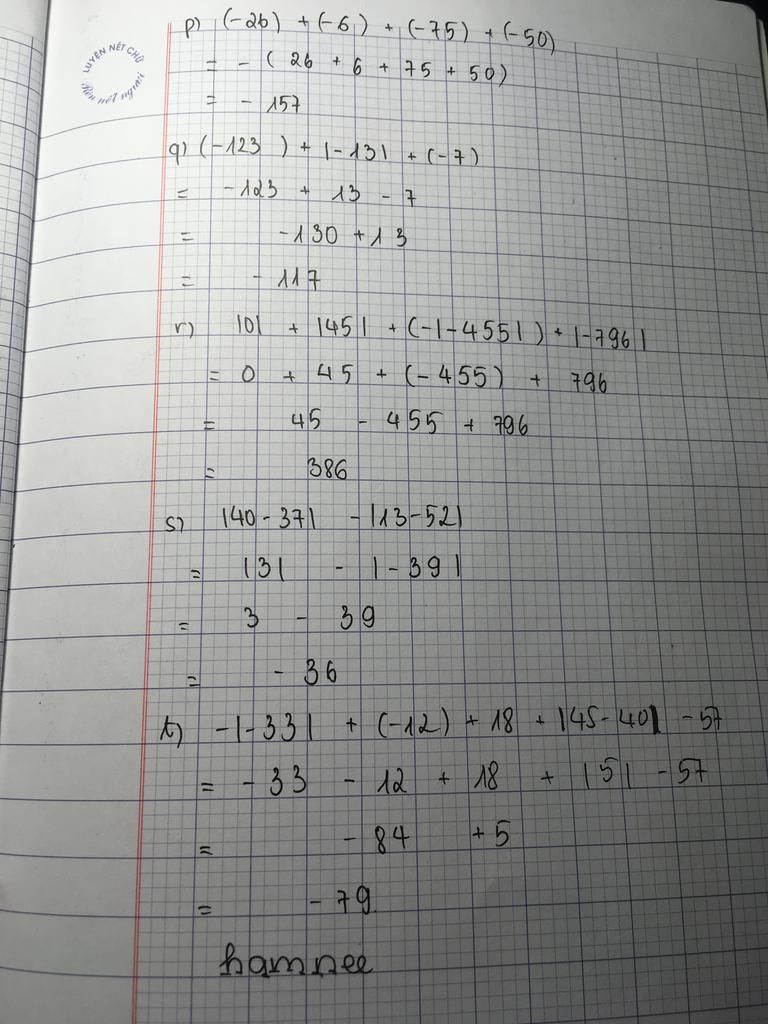 p) (-26) + (-6) + (-75) + (-50)
LUYỆN NÉT CHỮ
Rèn nết người
= - ( 26 + 6 + 75 + 50)
= - 157
q) (-123 ) + |-13| + (-7)
= -123 + 13 - 7
= -130 + 13
= - 117
r) |0| + |45| + (-|-455|) + |-796|
= 0 + 45 + (-455) + 796
= 45 - 455 + 796
= 386
s) |40-37| - |13-52|
= |3| - |-39|
= 3 - 39
= - 36
t) -|-33| + (-12) + 18 + |45-40| - 57
= - 33 - 12 + 18 + |5| - 57
= - 84 + 5
= - 79
hamnee